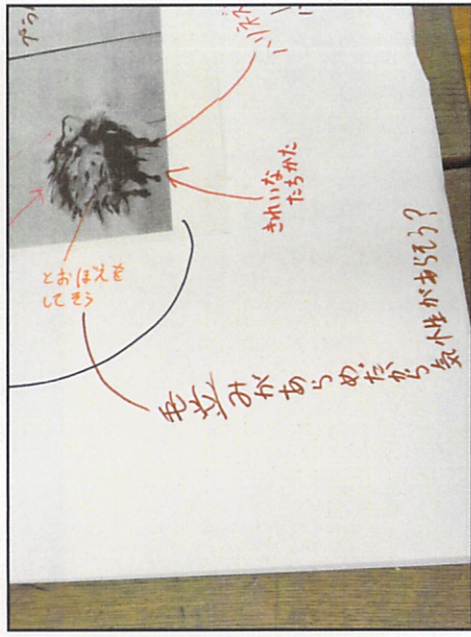 きれいな
たちかた
とおぼえを
してそう
毛並みがあらめだから気性があらそう?